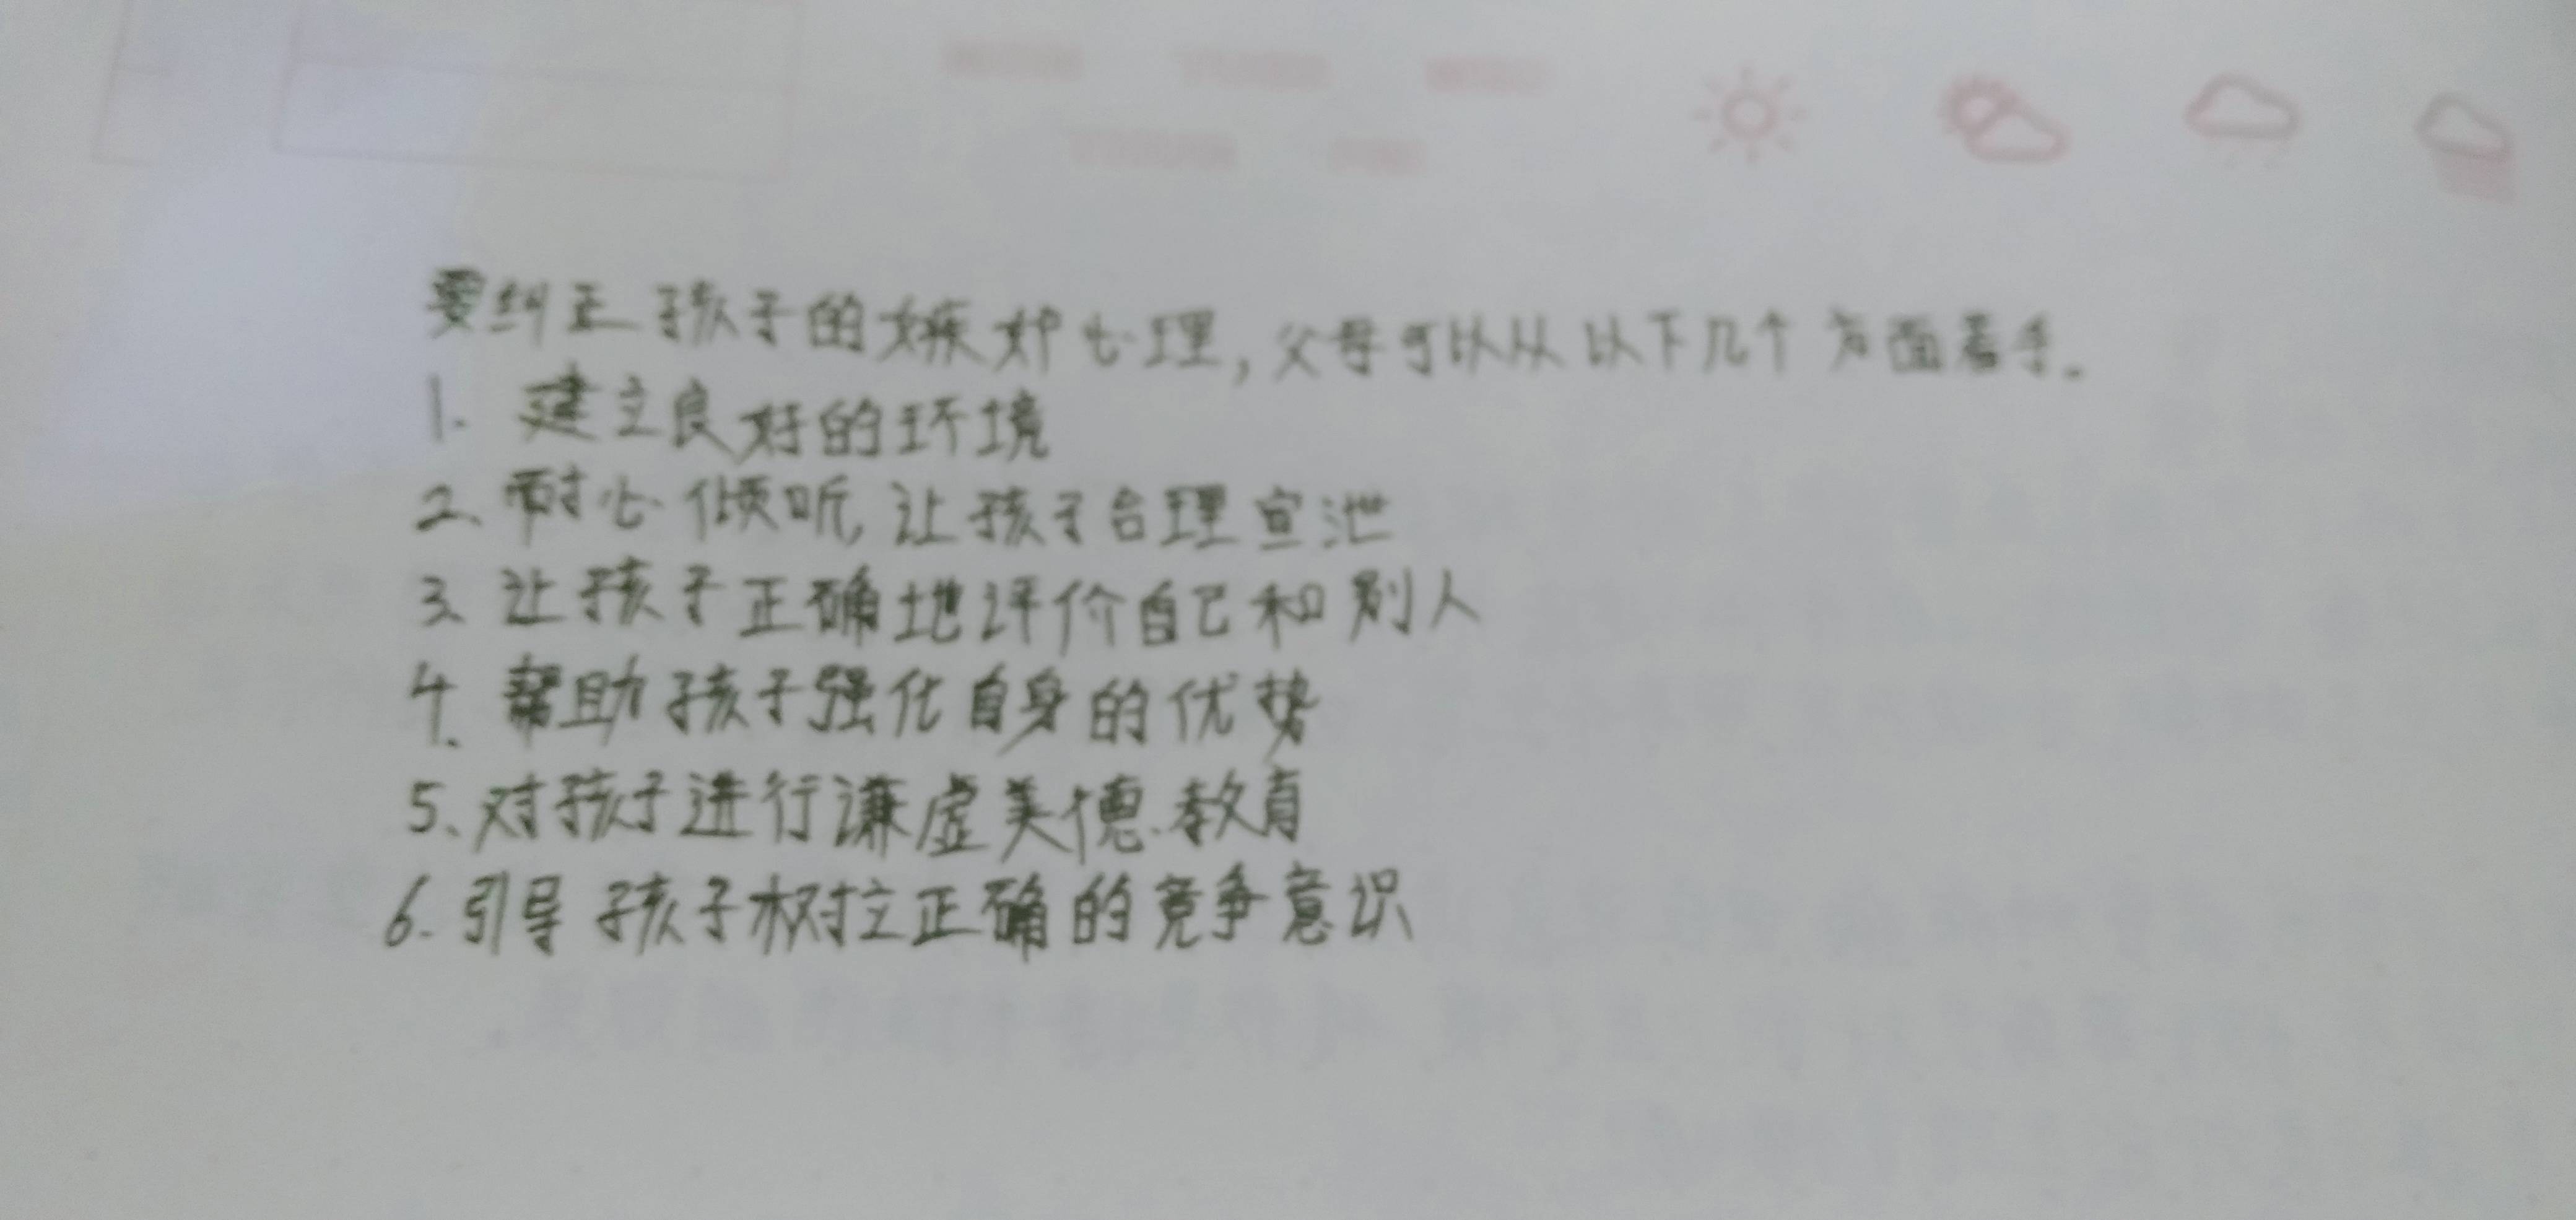 要纠正孩子的嫉妒心理，父母可以从以下几个方面着手。
1. 建立良好的环境
2. 耐心倾听，让孩子合理宣泄
3. 让孩子正确地评价自己和别人
4. 帮助孩子强化自身的优势
5. 对孩子进行谦虚美德教育
6. 引导孩子树立正确的竞争意识